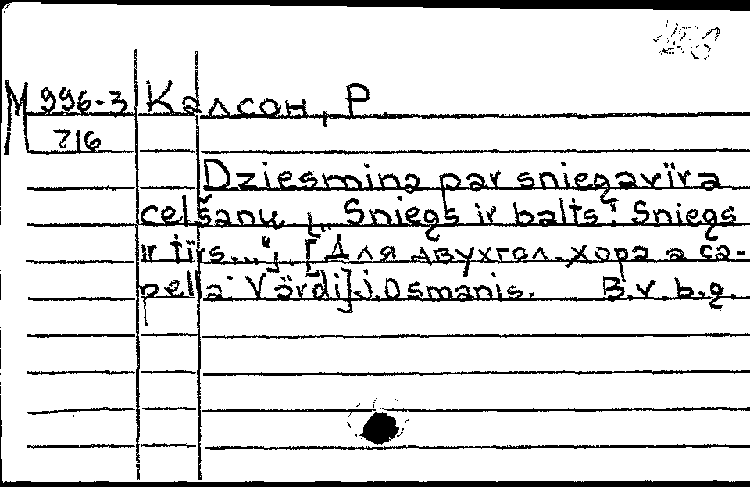 М 996-3 Калсон, Р.
716
Dziesmiņa par sniegavīra
celšanu „Sniegs ir balts! Sniegs
ir tīrs..."]. [Для двухгол. хора a ca-
pella. Vārdi] J. Osmanis. B.v. b.g.